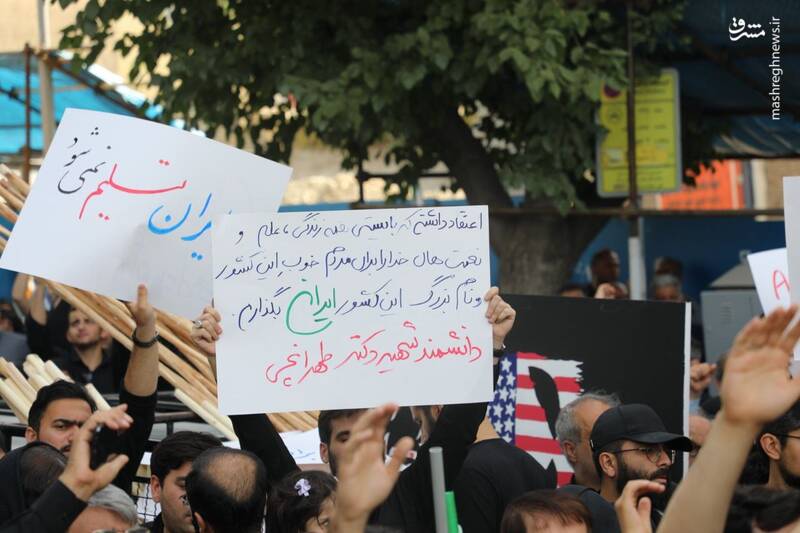 ایران تسلیم نمی شود
اعتقاد داشته که بایستی همه زندگی، علم و
نعمت های خدا را برای مردم خوب این کشور
و نام بزرگ این کشور ایران بگذارم.
دانشمند شهید دکتر طهرانچی
مشرق
mashreghnews.ir